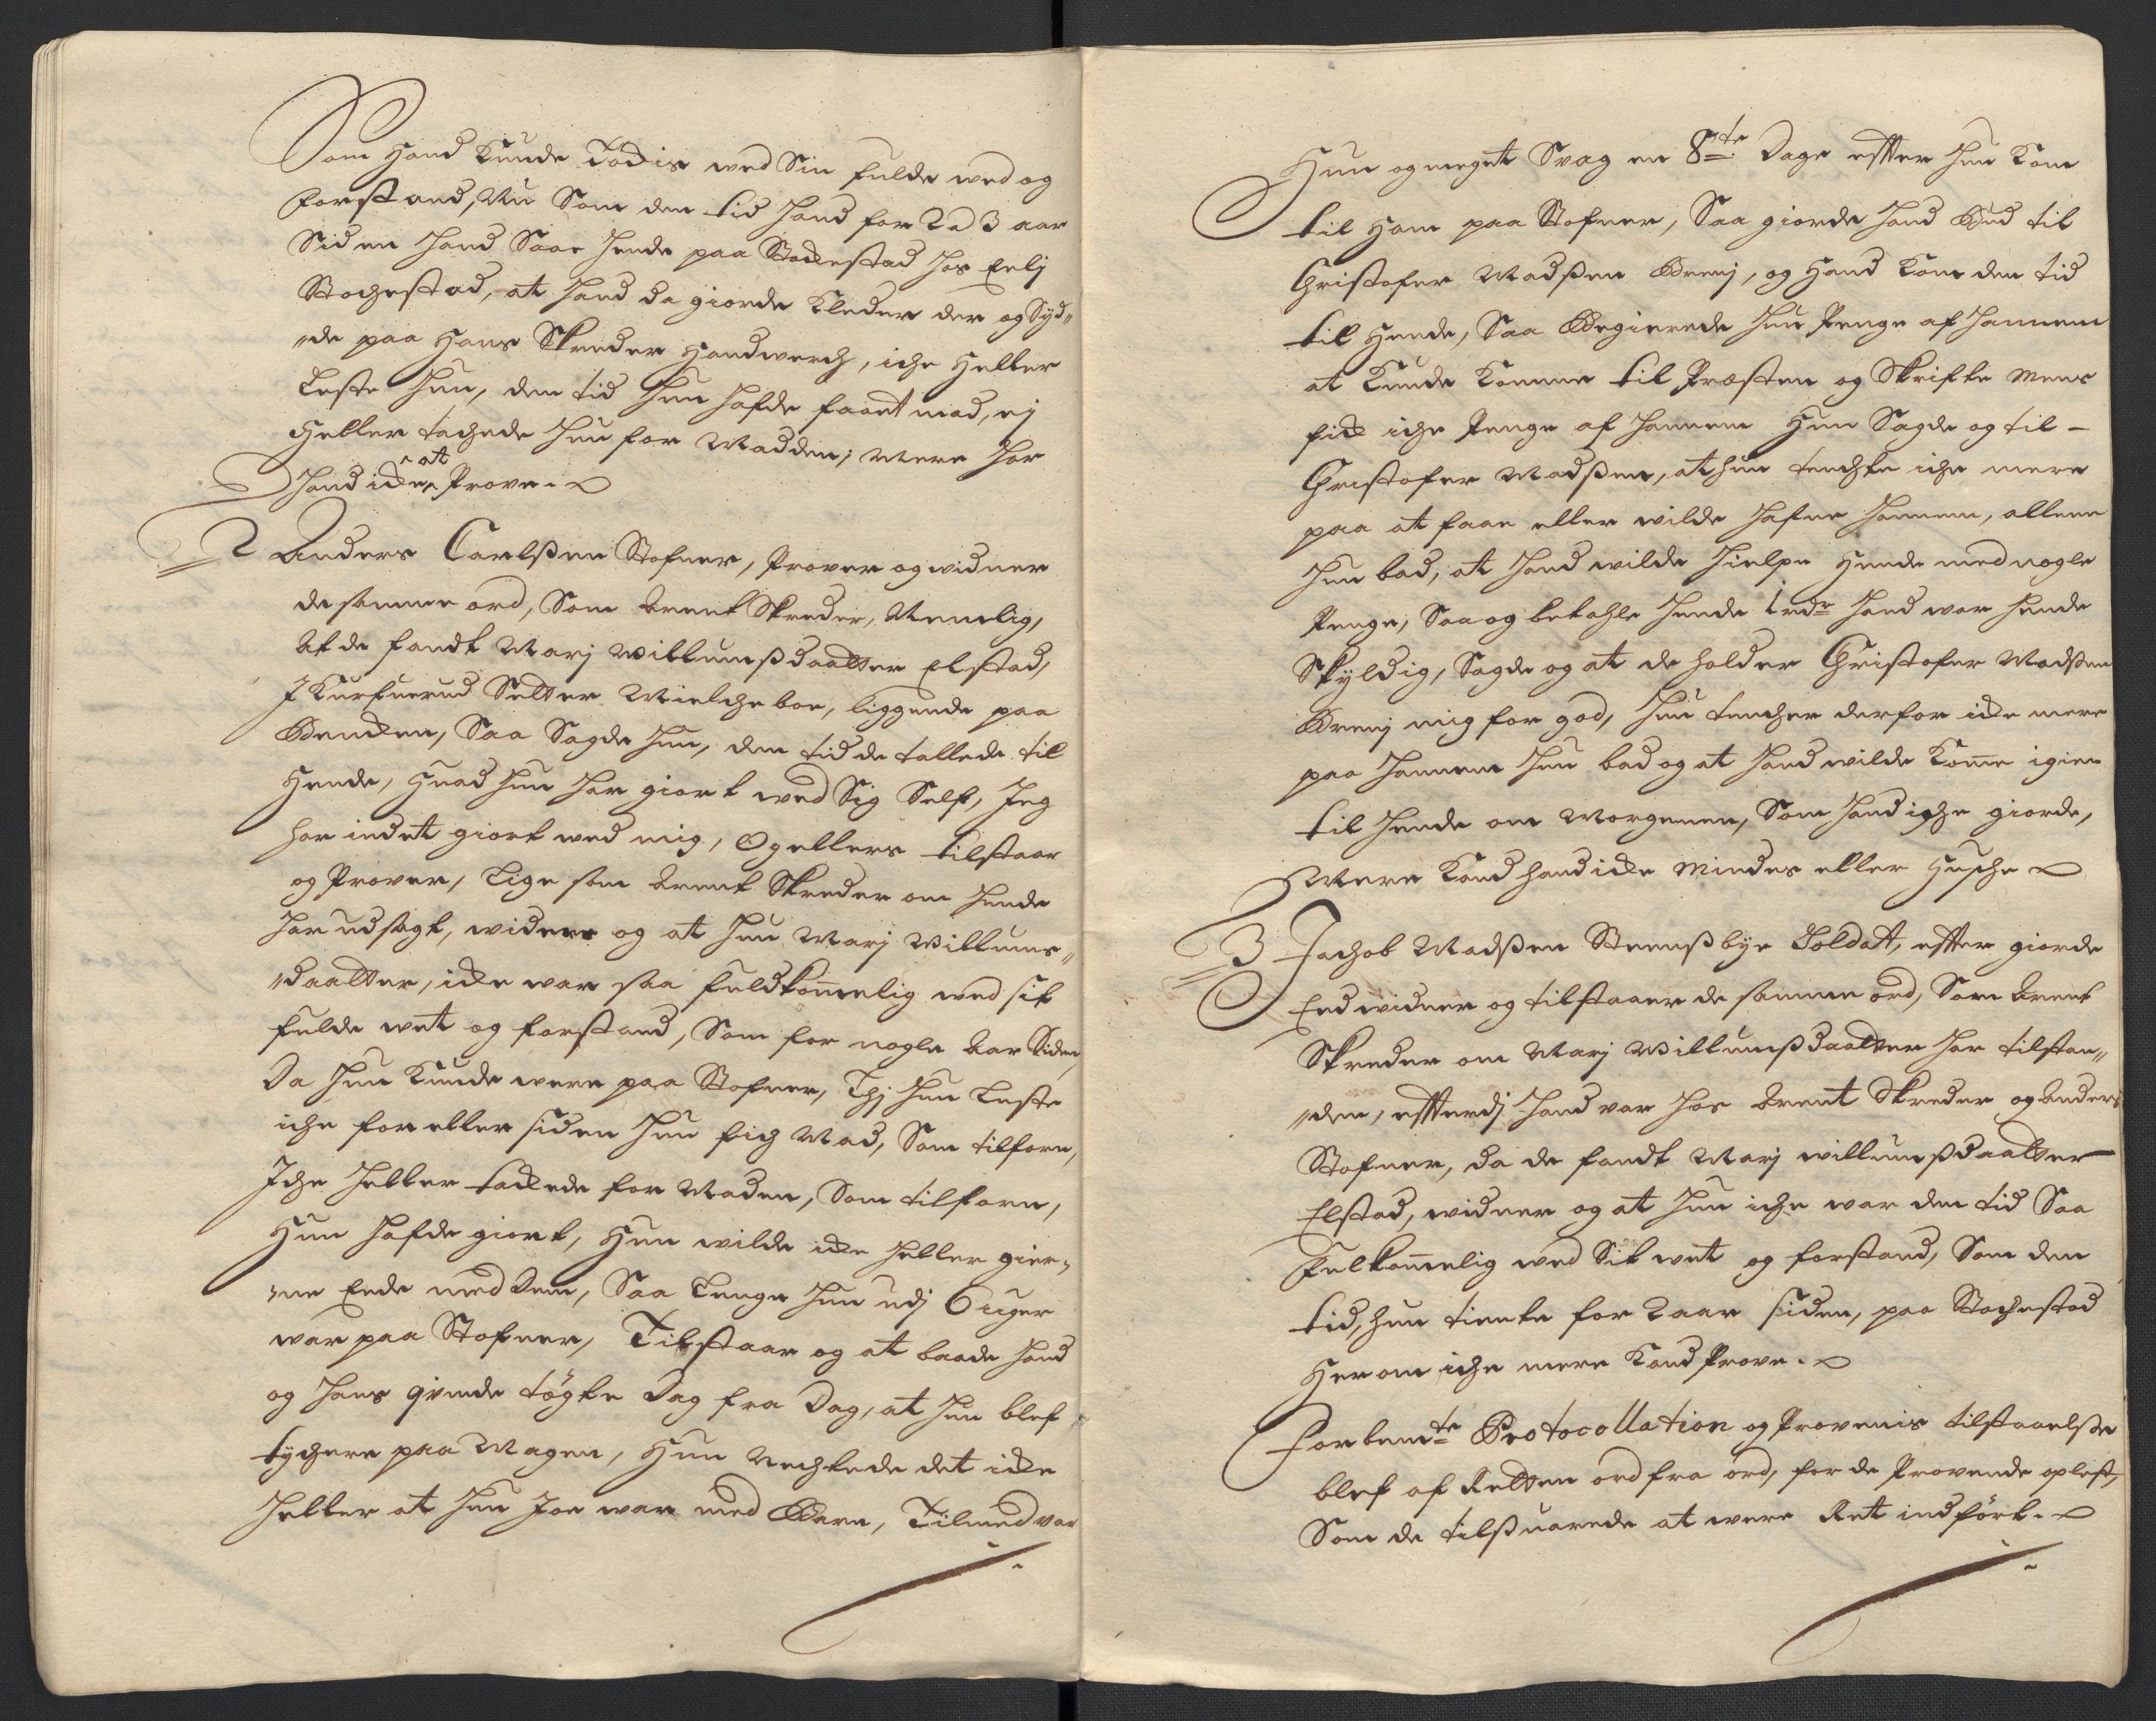 Som hand kunde Tockis ved Sin fulde ved og
forstand, Nu Som den tid hand for 2 a 3 aar
Siden hand Saae hende paa Stockestad hos Erlj
Stochestad, at hand da giorde Kleder der og Syd„
„de paa hans Skreder Handwerch, iche heller
Leste hun, den tid hun hafde faaet mad, ej
heller tachede hun for Madden; Mere har
hand icke at Prove.
2 Anders Carlssen Stofner, Prover og widner
de samme ord, Som Brent Skreder, Nemlig,
At de fandt Marj Willumssdaatter Elstad,
I Kursuerud Setter Mielche boe, liggende paa
Bencken, Saa Sagde hun, den tid de tallede til
hende, Huad hun har giort ved Sig Self, Jeg
har indet giort ved mig, Ogellers tilstaar
og Prover, Lige som Brent Skreder om hende
har udsagt, widner og at hun Marj Willums„
„daatter, icke war saa fuldkommelig ved sit
fulde wet og forstand, Som for nogle Aar Siden,
Da hun kunde were paa Stofner, Thj hun Leste
iche for eller siden hun fich Mad, Som tilforn,
Iche heller tackede for Maden, Som tilforn,
Hun hafde giort, Hun wilde icke heller gier„
„ne Eede med dem, Saa Lenge hun udj 6 uger
war paa Stofner, Tilstaar og at baade hand
og hans qvinde tögte Dag fra Dag, at hun blef
tychere paa Magen, Hun Nechtede det icke
heller at hun Joe war med Barn, Tilmed var
Hun og meget Svag en 8te Dage efter hun kom
til ham paa Stofner, Saa giorde hand Bud til
Christofer Madssen Brenj, og hand kom den tid
til hende, Saa Begierede hun Penge af hannem
at kunde komme til Præsten og Skrifte Mens
fick iche Penge af hannem Hun Sagde og til
Christofer Madssen, at hun tenchte iche mere
paa at faae eller wilde hafue hannem, allene
hun bad, at hand wilde hielpe hende med nogle
Penge, Saa og betahle hende 1 rdr hand war hende
Skyldig, Sagde og at de holder Christofer Madssen
Brenj mig for god, hun tencher derfor icke mere
paa hannem hun bad og at hand wilde komme igien
til hende om Morgenen, Som hand iche giorde,
Mere kand hand icke Mindes eller Husche
3 Jachob Madssen Steenssbye Soldat, efter giorde
Eed widner og tilstaaer de samme ord, Som Brent
Skreder om Marj Willumssdaatter har tilstan„
„den, effterdj hand var hos Brent Skreder og Anders
Stofner, da de fandt Marj willumssdaatter
Elstad, widner og at hun iche war den tid Saa
fulkommelig ved Sit wet og forstand, Som den
tid, hun tiente for 2 aar siden, paa Stochestad
Her om iche mere kand Prove.
Forbemte Protocollation og Provenis tilstaaelsse
blef af Retten ord fra ord, for de Provende oplest,
Som de tilssuarede at were Ret indfört.